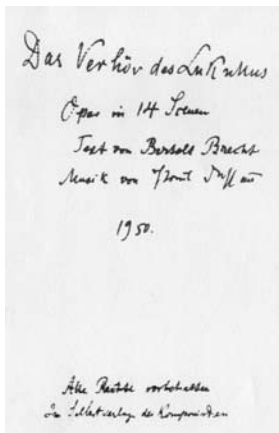 Das Verhör des Lukullus
Oper in 14 Scenen
Text von Bertolt Brecht
Musik von Paul Dessau
1950.
Alle Rechte vorbehalten
Im Selbstverlag des Komponisten